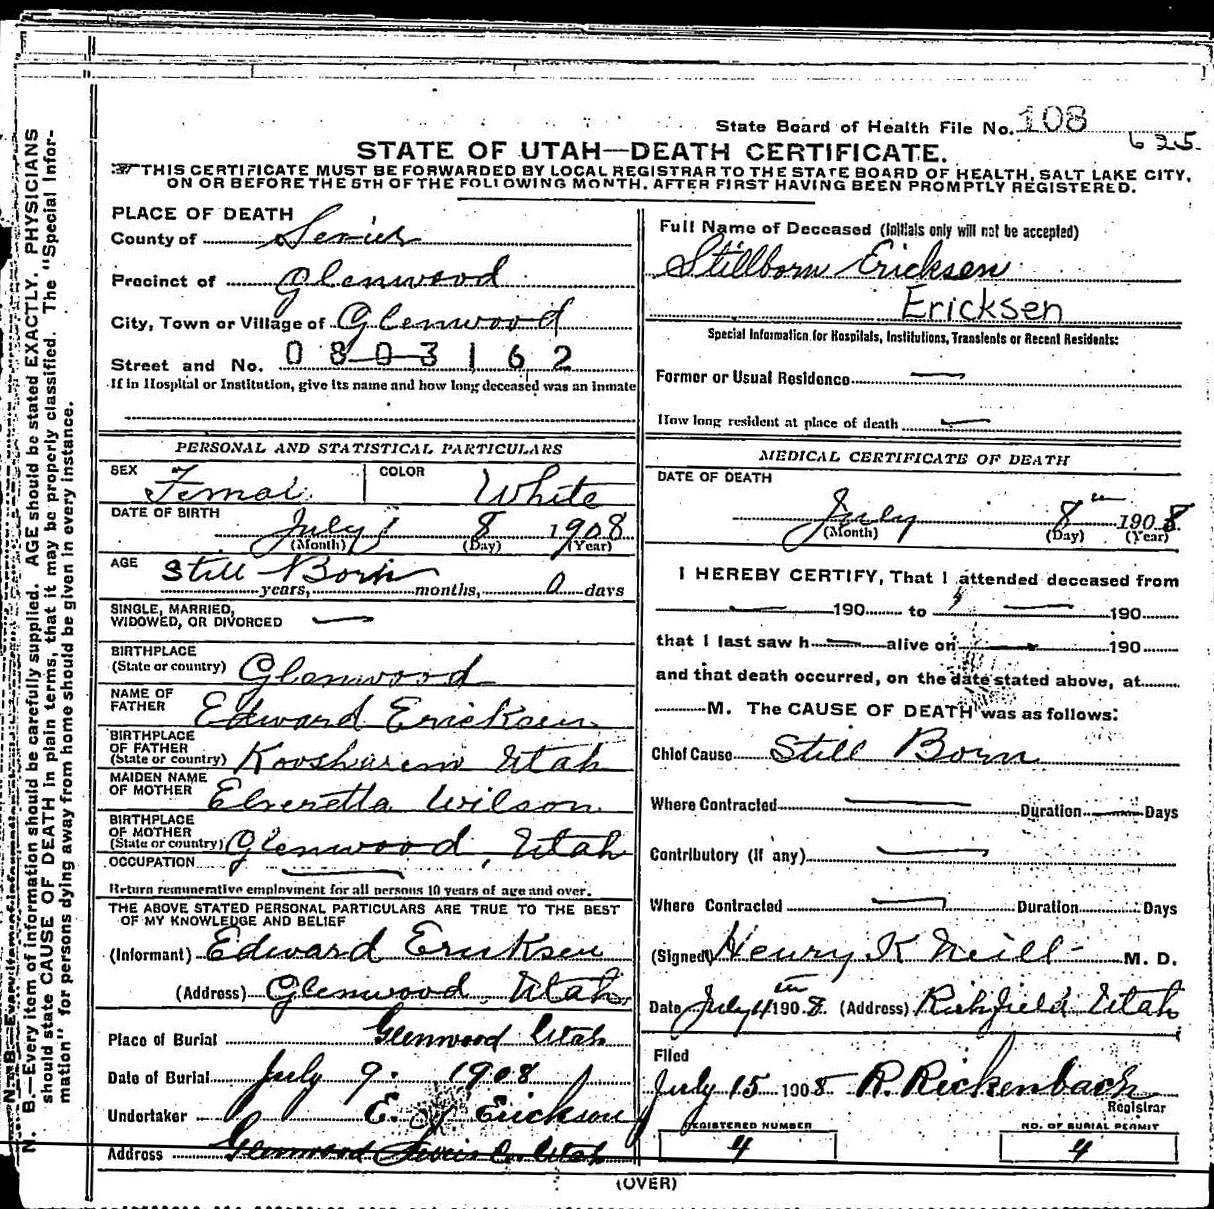 State Board of Health File No. 108
625
STATE OF UTAH—DEATH CERTIFICATE.
THIS CERTIFICATE MUST BE FORWARDED BY LOCAL REGISTRAR TO THE STATE BOARD OF HEALTH, SALT LAKE CITY,
ON OR BEFORE THE 5TH OF THE FOLLOWING MONTH, AFTER FIRST HAVING BEEN PROMPTLY REGISTERED.
PLACE OF DEATH
County of Sevier
Precinct of Glenwood
City, Town or Village of Glenwood
Street and No. 0803162
If in Hospital or Institution, give its name and how long deceased was an inmate
PERSONAL AND STATISTICAL PARTICULARS
SEX Femal COLOR White
DATE OF BIRTH
July 8 1908
(Month) (Day) (Year)
AGE Still Born
years, months, 0 days
SINGLE, MARRIED,
WIDOWED, OR DIVORCED —
BIRTHPLACE
(State or country) Glenwood
NAME OF
FATHER Edward Ericksen
BIRTHPLACE
OF FATHER
(State or country) Koosharem Utah
MAIDEN NAME
OF MOTHER Elveretta Wilson
BIRTHPLACE
OF MOTHER
(State or country) Glenwood, Utah
OCCUPATION —
Return remunerative employment for all persons 10 years of age and over.
THE ABOVE STATED PERSONAL PARTICULARS ARE TRUE TO THE BEST
OF MY KNOWLEDGE AND BELIEF
(Informant) Edward Ericksen
(Address) Glenwood, Utah
Place of Burial Glenwood Utah
Date of Burial July 9. 1908
Undertaker E. Erickson
Address Glenwood Sevier Co. Utah
Full Name of Deceased (Initials only will not be accepted)
Stillborn Ericksen
Ericksen
Special Information for Hospitals, Institutions, Transients or Recent Residents:
Former or Usual Residence —
How long resident at place of death —
MEDICAL CERTIFICATE OF DEATH
DATE OF DEATH
July 8th 1908
(Month) (Day) (Year)
I HEREBY CERTIFY, That I attended deceased from
— 190 to — 190
that I last saw h — alive on — 190
and that death occurred, on the date stated above, at
M. The CAUSE OF DEATH was as follows:
Chief Cause Still Born
Where Contracted — Duration — Days
Contributory (if any) —
Where Contracted — Duration Days
(Signed) Henry K Neill M. D.
Date July 4th 1908. (Address) Richfield Utah
Filed
July 15 1908 R. Rickenbach
Registrar
REGISTERED NUMBER
4
NO. OF BURIAL PERMIT
4
(OVER)
N. B.—Every item of information should be carefully supplied. AGE should be stated EXACTLY. PHYSICIANS
should state CAUSE OF DEATH in plain terms, that it may be properly classified. The "Special Infor-
mation" for persons dying away from home should be given in every instance.